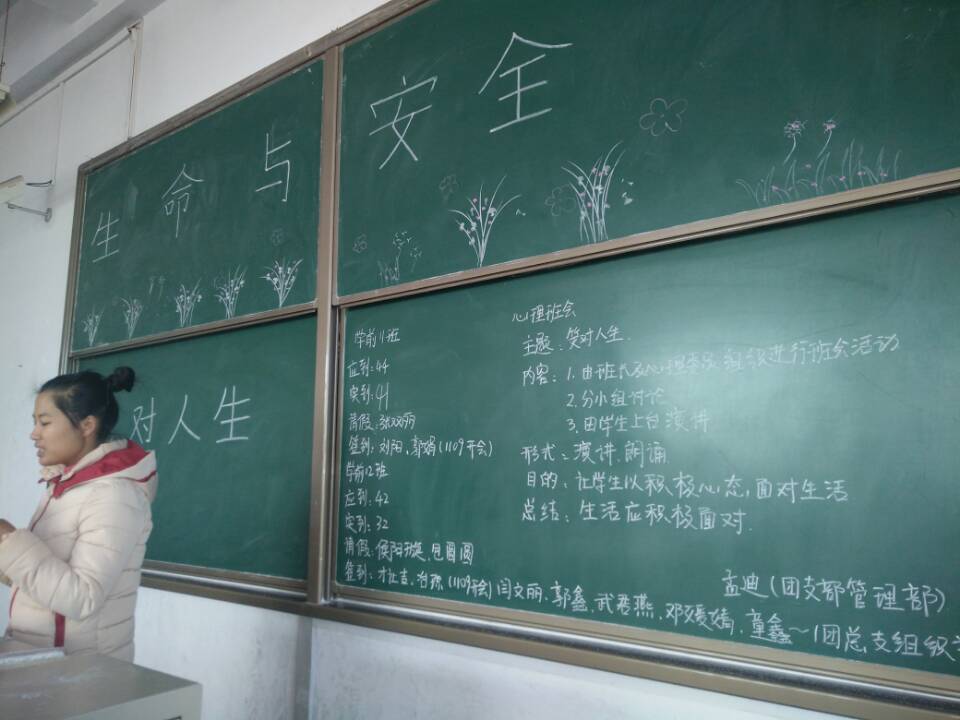 生命与安全
对人生
学前11班
应到:44
实到:41
请假:张双丽
签到:刘阳,郭娟(1109开会)
学前12班
应到:42
实到:32
请假:侯阳
签到:(1109开会)闫文丽,郭鑫,武君燕,邓媛嫣,童鑫~(团总支组织
孟迪(团支部管理部)
心理班会
主题:笑对人生.
内容:1.由班长及心理委员组织进行班会活动
2.分小组讨论
3.由学生上台演讲
形式:演讲.朗诵
目的:让学生以积极心态,面对生活
总结:生活应积极面对.